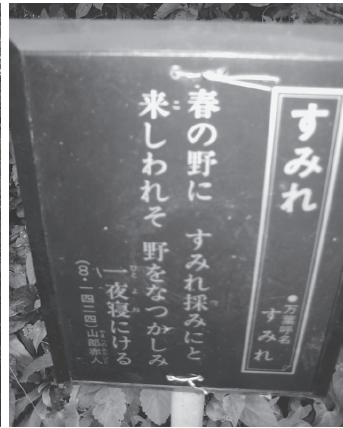 すみれ
●万葉呼名
すみれ
春の野に すみれ採みにと
来しわれそ 野をなつかしみ
一夜寝にける
(8・一四二四)山部赤人